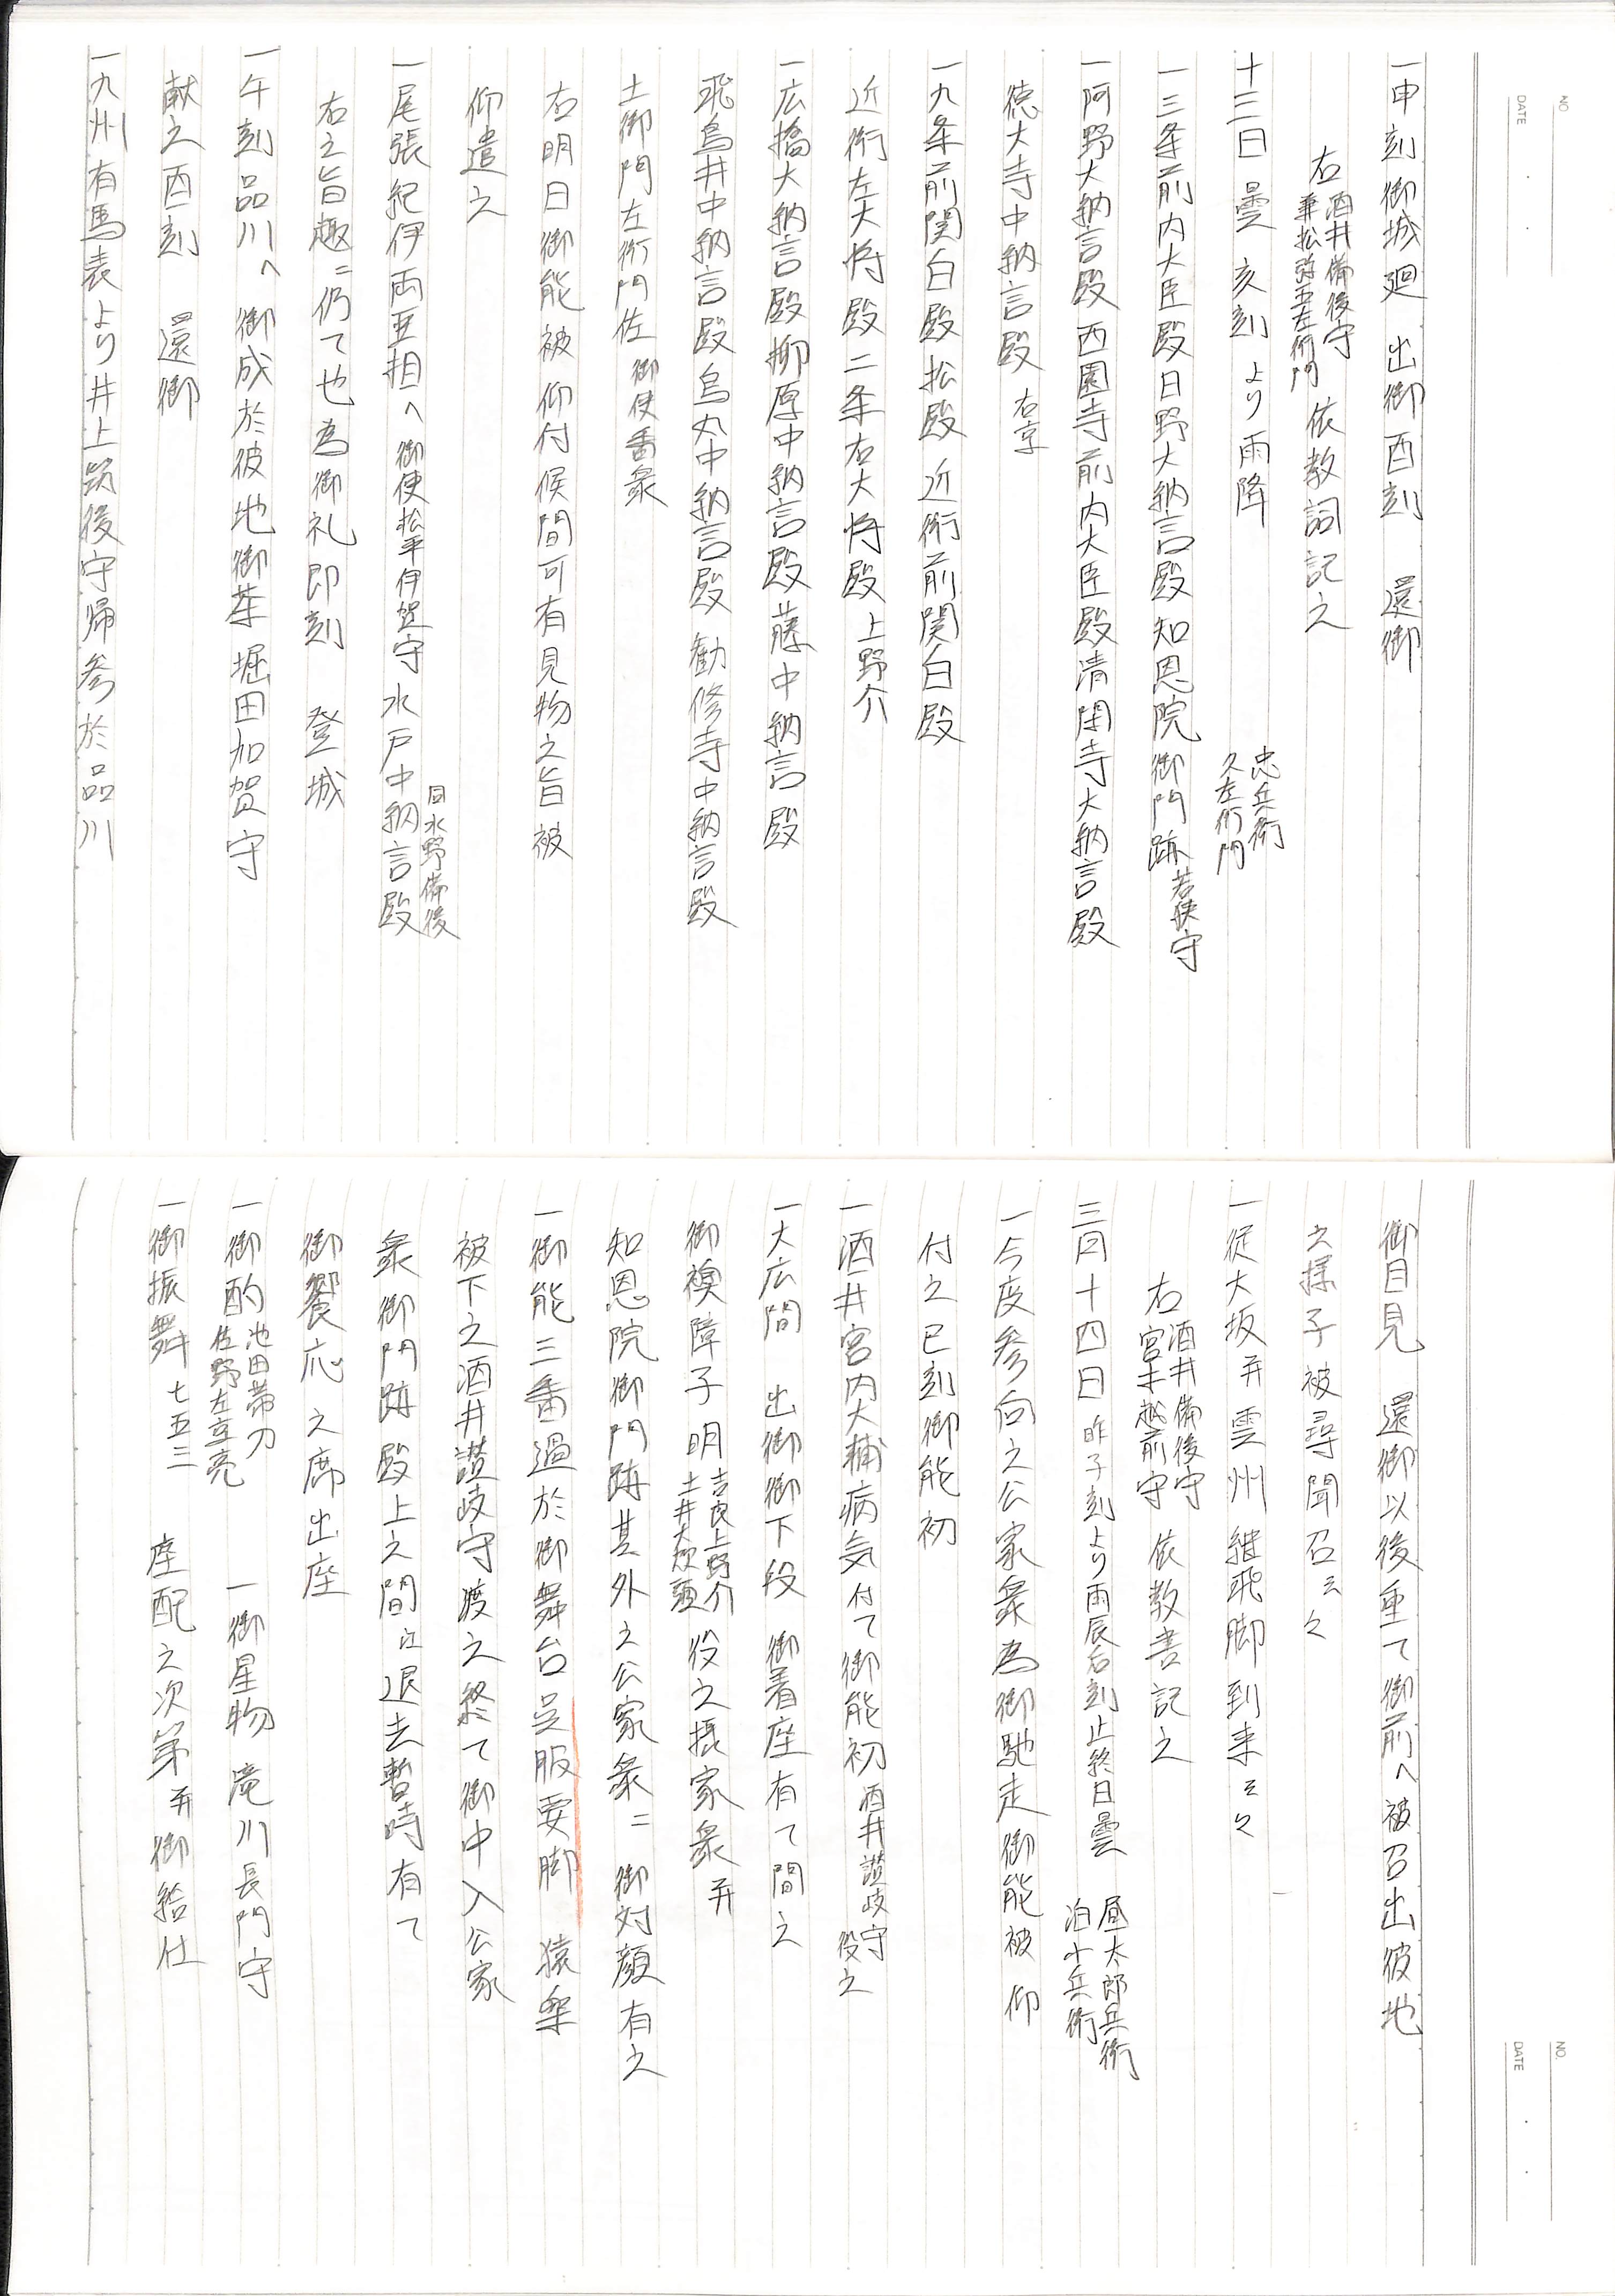 NO.
DATE
一申刻御城廻 出御酉刻 還御
右酒井備後守
兼松弥五左衛門 依教詞記之
十三日 曇 亥刻より雨降 忠兵衛
久左衛門
一三条前内大臣殿日野大納言殿 知恩院御門跡 若狭守
一阿野大納言殿 西園寺前内大臣殿清閑寺大納言殿
徳大寺中納言殿 右京
一九条前関白殿 松殿 近衛前関白殿
近衛左大将殿 二条右大将殿 上野介
一広橋大納言殿 柳原中納言殿 藤中納言殿
飛鳥井中納言殿 烏丸中納言殿 勧修寺中納言殿
土御門左衛門佐 御使番衆
右明日御能被 仰付候間可有見物之旨被
仰遣之
一尾張紀伊両亜相へ 御使松平伊賀守 水戸中納言殿 同水野備後
右之旨趣ニ仍て也為御礼即刻 登城
一午刻品川へ 御成於彼地御茶 堀田加賀守
献之酉刻 還御
一九州有馬表より井上筑後守帰参於品川
NO.
DATE
御目見 還御以後重て御前へ被召出彼地
之様子被尋聞召云々
一従大坂并雲州継飛脚到来云々
右酒井備後守
宮木越前守 依教書記之
三月十四日 昨子刻より雨辰后刻止終日曇 昼太郎兵衛
泊十兵衛
一今度参向之公家衆為御馳走御能被 仰
付之巳刻御能初
一酒井宮内大輔病気付て御能初 酒井讃岐守役之
一大広間 出御御下段 御着座有て間之
御襖障子明 吉良上野介
土井大炊頭 役之摂家衆并
知恩院御門跡其外之公家衆ニ 御対顔有之
一御能三番過於御舞台呉服要脚 猿楽
被下之酒井讃岐守渡之終て御中入公家
衆御門跡殿上之間江退去暫時有て
御饗応之席出座
一御酌 池田帯刀
佐野左京亮 一御星物 滝川長門守
一御振舞 七五三 座配之次第并御給仕